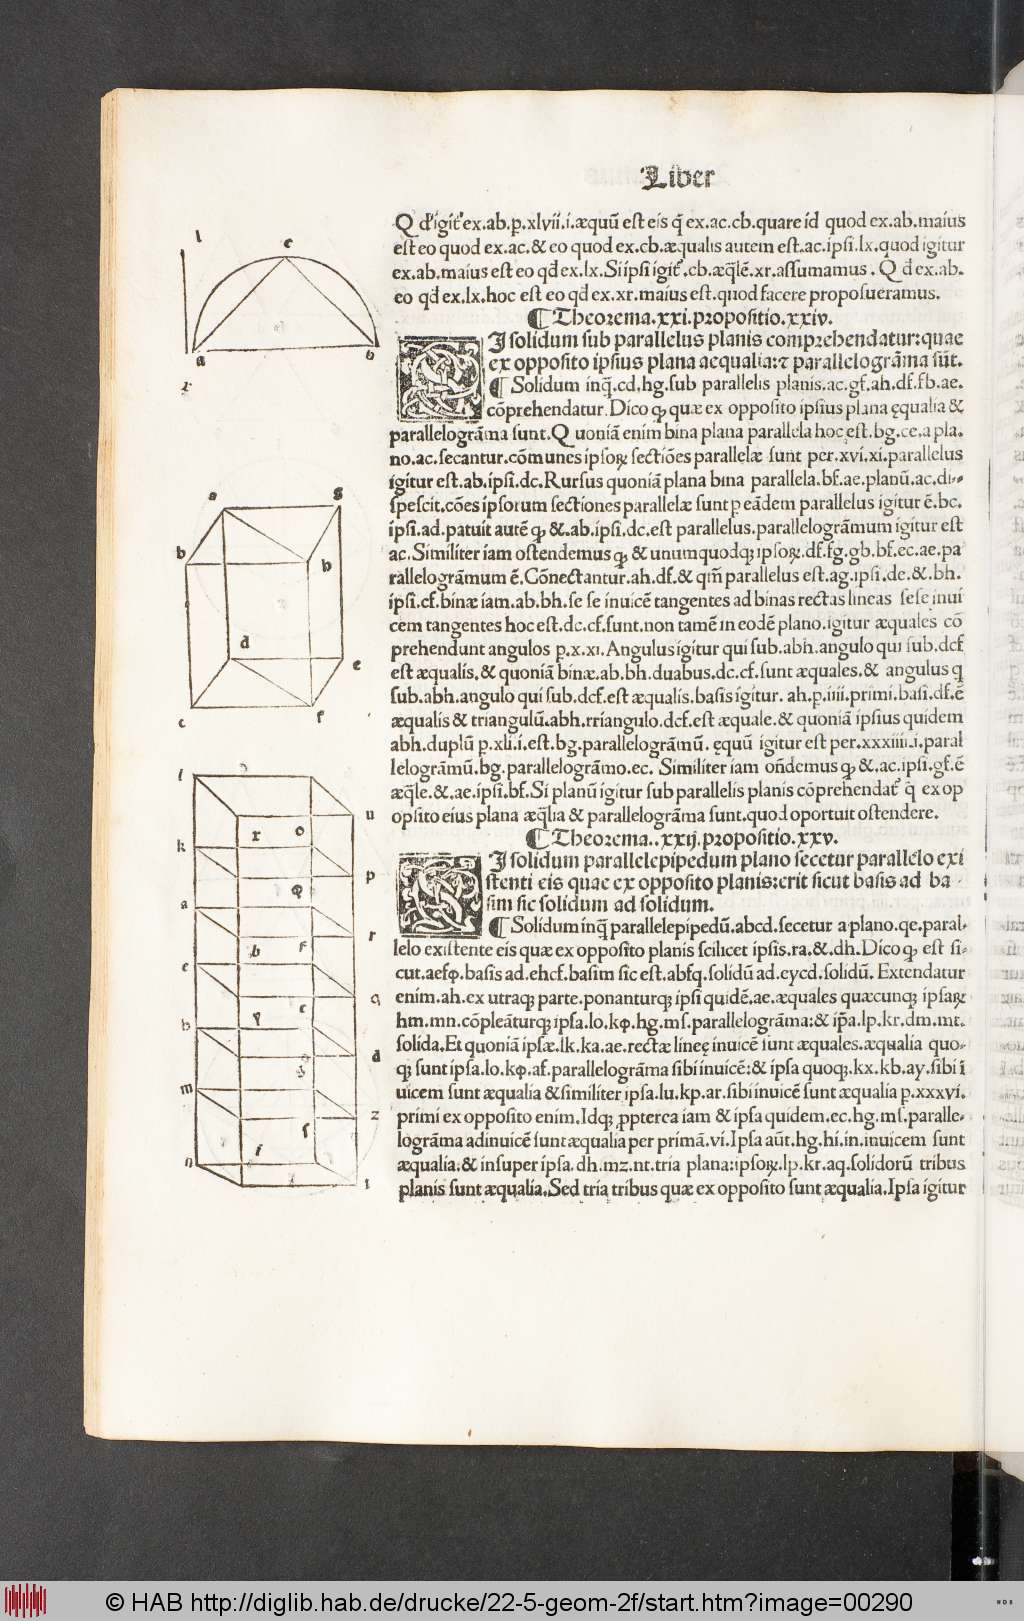 Liber
Q d' igit' ex.ab.p.xlvii.i.æquū est eis q̄ ex.ac.cb.quare id quod ex.ab.maius
est eo quod ex.ac.& eo quod ex.cb.æqualis autem est.ac.ipsi.lx.quod igitur
ex.ab.maius est eo qd ex.lx.Si ipsi igit'.cb.æq̄lē.xr.assumamus.Q d ex.ab.
eo qd ex.lx.hoc est eo qd ex.xr.maius est.quod facere proposueramus.
¶Theorema.xxi.propositio.xxiv.
SI solidum sub parallelus planis comprehendatur:quae
ex opposito ipsius plana aequalia:⁊ parallelogrāma sūt.
¶ Solidum inq̄.cd,hg.sub parallelis planis.ac.gf.ah.df.fb.ae.
cōprehendatur.Dico ꝙ quæ ex opposito ipsius plana ęqualia &
parallelogrāma sunt.Q uoniā enim bina plana parallela hoc est.bg.ce.a pla.
no.ac.secantur.cōmunes ipsoꝝ sectiōes parallelæ sunt per.xvi.xi.parallelus
igitur est.ab.ipsi.dc.Rursus quoniā plana bina parallela.bf.ae.planū.ac.di-
spescit.cōes ipsorum sectiones parallelæ sunt p eādem parallelus igitur ē.bc.
ipsi.ad.patuit autē ꝙ &.ab.ipsi.dc.est parallelus.parallelogrāmum igitur est
ac.Similiter iam ostendemus ꝙ & unumquodqꝫ ipsoꝝ.df.fg.gb.bf.ec.ae.pa
rallelogrāmum ē.Cōnectantur.ah.df.& qm̄ parallelus est.ag.ipsi.de.&.bh.
ipsi.cf.binæ iam.ab.bh.se se inuicē tangentes ad binas rectas lineas sese inui
cem tangentes hoc est.dc.cf.sunt.non tamē in eodē plano.igitur æquales cō
prehendunt angulos p.x.xi.Angulus igitur qui sub.abh.angulo qui sub.dcf
est æqualis,& quoniā binæ.ab.bh.duabus.dc.cf.sunt æquales.& angulus q
sub.abh.angulo qui sub.dcf.est æqualis.basis igitur.ah.p.iiii.primi.basi.df.ē
æqualis & triangulū.abh.rriangulo.dcf.est æquale.& quoniā ipsius quidem
abh.duplū p.xli.i.est.bg.parallelogrāmū.ęquū igitur est per.xxxiiii.i.paral
lelogrāmū.bg.parallelogrāmo.ec. Similiter iam on̄demus ꝙ &.ac.ipsi.gf.ē
æq̄le.&.ae.ipsi.bf.Si planū igitur sub parallelis planis cōprehendat' q̄ ex op
opsito eius plana æq̄lia & parallelogrāma sunt.quod oportuit ostendere.
¶Theorema..xxij.propositio.xxv.
SI solidum parallelepipedum plano secetur parallelo exi
stenti eis quae ex opposito planis:erit sicut basis ad ba
sim sic solidum ad solidum.
¶Solidum inq̄ parallelepipedū.abcd.secetur a plano.qe.paral-
lelo existente eis quæ ex opposito planis scilicet ipsis.ra.&.dh.Dico ꝙ est si-
cut.aefφ.basis ad.ehcf.basim sic est.abfq.solidū ad.eycd.solidū. Extendatur
enim.ah.ex utraqꝫ parte.ponanturqꝫ ipsi quidē.ae.æquales quæcunqꝫ ipsaꝝ
hm.mn.cōpleāturqꝫ ipsa.lo.kφ.hg.ms.parallelogrāma:& ip̄a.lp.kr.dm.mt.
solida.Et quoniā ipsæ.lk.ka.ae.rectæ lineę inuicē sunt æquales.æqualia quo-
qꝫ sunt ipsa.lo.kφ.af.parallelogrāma sibi inuicē:& ipsa quoqꝫ.kx.kb.ay.sibi ī
uicem sunt æqualia & similiter ipsa.lu.kp.ar.sibi inuicē sunt æqualia p.xxxvi.
primi ex opposito enim.Idqꝫ ꝓpterea iam & ipsa quidem.ec.hg.ms.paralle-
logrāma adinuicē sunt æqualia per primā.vi.Ipsa aūt.hg.hi.in.inuicem sunt
æqualia.& insuper ipsa.dh.mz.nt.tria plana:ipsoꝝ.lp.kr.aq.solidorū tribus
planis sunt æqualia.Sed tria tribus quæ ex opposito sunt æqualia.Ipsa igitur
l c
a b
x
a g
b h
d e
c f
l u
k x o
p
a φ
b f r
e
y c q
h
d
m z
s
n i t
© HAB http://diglib.hab.de/drucke/22-5-geom-2f/start.htm?image=00290